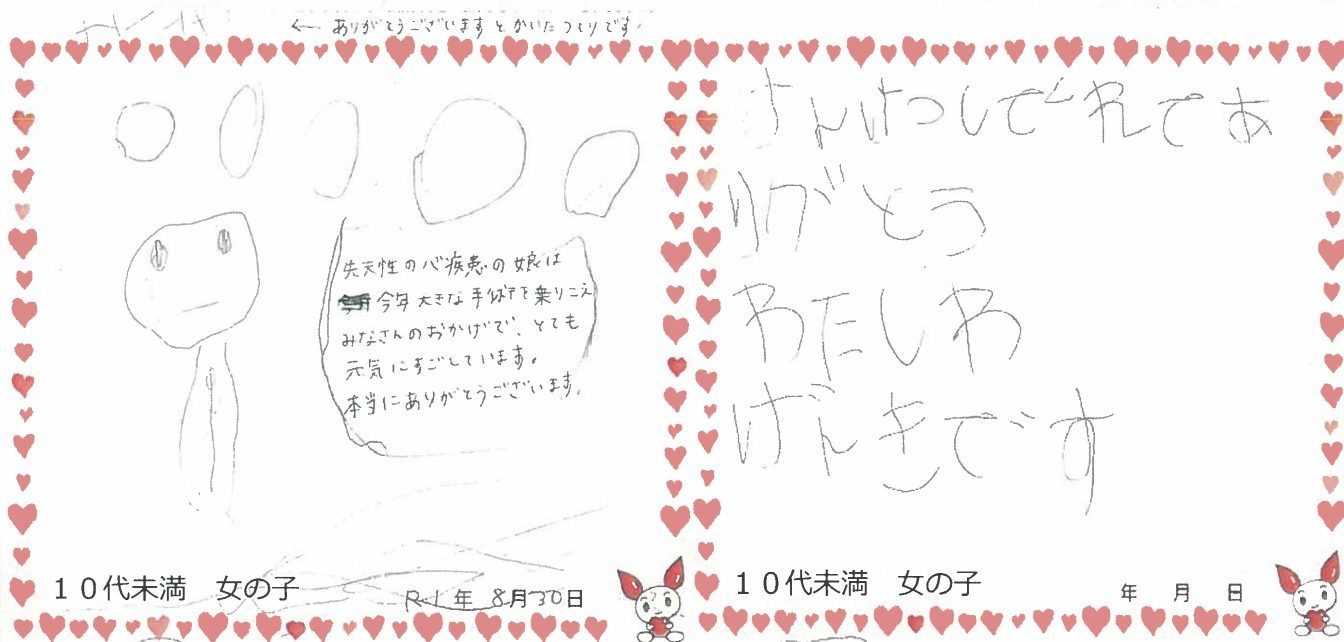 ← ありがとうございますとかいたつもりです。
先天性の心疾患の娘は
今年大きな手術を乗りこえ
みなさんのおかげで、とても
元気にすごしています。
本当にありがとうございます。
10代未満 女の子
R1年 8月30日
けんけつしてくれてあ
りがとう
わたしわ
げんきです
10代未満 女の子
年 月 日